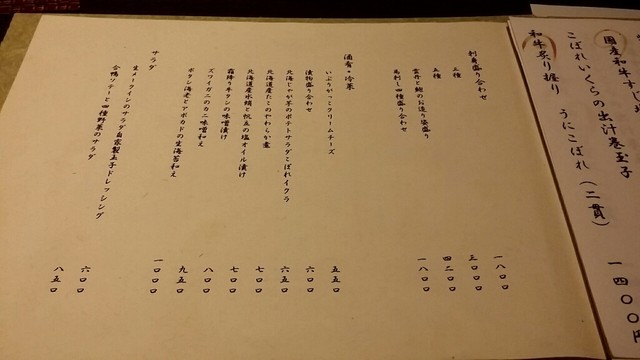 国産和牛すじ
こぼれいくらの出汁巻玉子 一四〇〇円
和牛炙り握り うにこぼれ(二貫)
刺身盛り合わせ
三種 一八〇〇
五種 三〇〇〇
雲丹と鮑のお造り姿盛り 四二〇〇
馬刺し四種盛り合わせ 一八〇〇
酒肴・冷菜
いぶりがっこクリームチーズ 五五〇
漬物盛り合わせ 六〇〇
北海じゃが芋のポテトサラダこぼれイクラ 六五〇
北海道産たこのやわらか煮 七〇〇
北海道産水蛸と帆立の塩オイル漬け 七〇〇
霜降り牛タンの味噌漬け 八〇〇
ズワイガニのカニ味噌和え 九五〇
ボタン海老とアボカドの生海苔和え 一〇〇〇
サラダ
生メークインのサラダ自家製玉子ドレッシング 六〇〇
合鴨ソテーと四種野菜のサラダ 八五〇